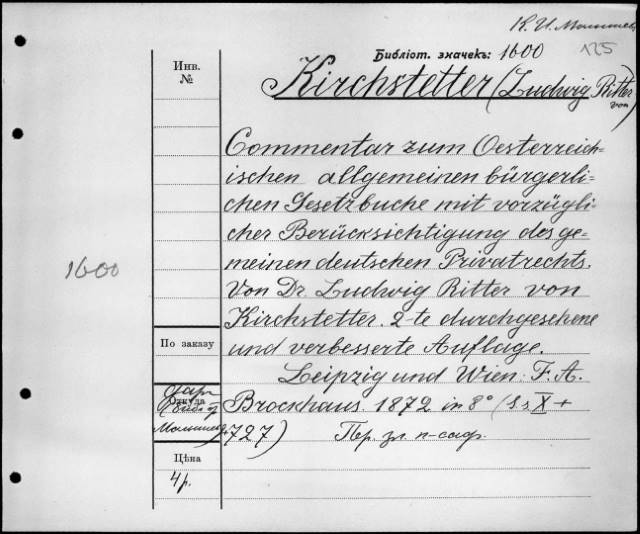 К. И. Малышев
125
Библіот. значекъ: 1600
Инв.
№
Kirchstetter (Ludwig Ritter
von)
Commentar zum Oesterreich=
ischen allgemeinen bürgerli=
chen Gesetzbuche mit vorzügli=
cher Berücksichtigung des ge=
meinen deutschen Privatrechts.
1600
Von Dr. Ludwig Ritter von
Kirchstetter. 2-te durchgesehene
По заказу
und verbesserte Auflage.
Leipzig und Wien. F. A.
Откуда
дар
Малышев
Brockhaus 1872 in 8° (Ss X +
+727) Пер. зл. п-саф.
Цѣна
4 р.